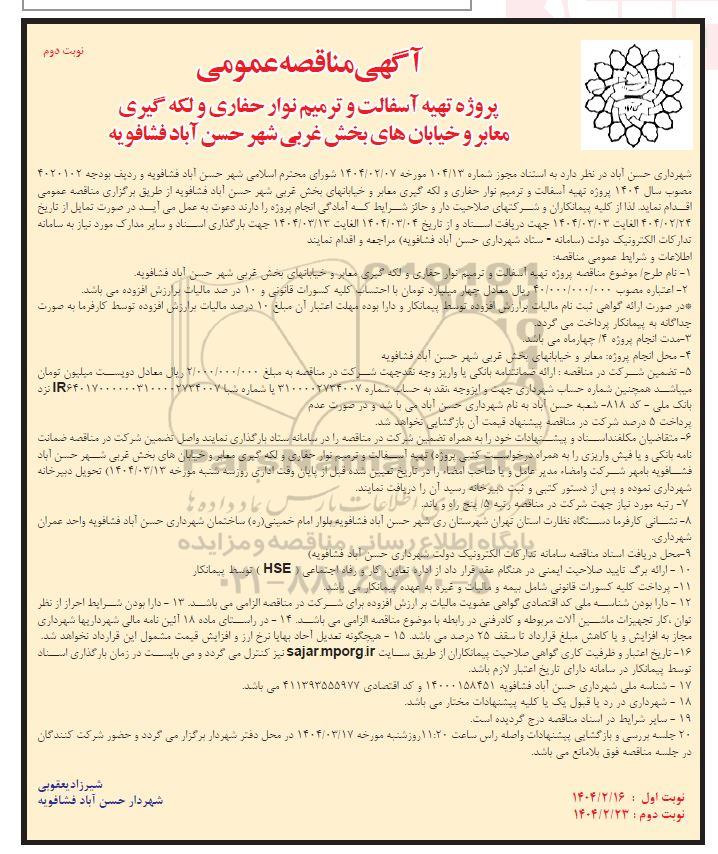 نوبت دوم
آگهی مناقصه عمومی
پروژه تهیه آسفالت و ترمیم نوار حفاری و لکه گیری
معابر و خیابان های بخش غربی شهر حسن آباد فشافویه
شهرداری حسن آباد در نظر دارد به استناد مجوز شماره ۱۰۴/۱۳ مورخه ۱۴۰۴/۰۲/۰۷ شورای محترم اسلامی شهر حسن آباد فشافویه و ردیف بودجه ۴۰۲۰۱۰۲
مصوب سال ۱۴۰۴ پروژه تهیه آسفالت و ترمیم نوار حفاری و لکه گیری معابر و خیابانهای بخش غربی شهر حسن آباد فشافویه از طریق برگزاری مناقصه عمومی
اقـدام نماید. لذا از کلیه پیمانکاران و شـرکتهای صلاحیت دار و حائز شـرایط کـه آمادگی انجام پروژه را دارند دعوت به عمل می آیـد در صورت تمایل از تاریخ
۴۰۴/۰۲/۲۴ الغایت ۱۴۰۴/۰۳/۰۳ جهت دریافت اسـناد و از تاریخ ۱۴۰۴/۰۳/۰۴ الغایت ۱۴۰۴/۰۳/۱۳ جهت بارگذاری اسـناد و سایر مدارک مورد نیاز به سامانه
تدارکات الکترونیک دولت (سامانه - ستاد شهرداری حسن آباد فشافویه) مراجعه و اقدام نمایند
اطلاعات و شرایط عمومی مناقصه:
۱- نام طرح/ موضوع مناقصه پروژه تهیه آسفالت و ترمیم نوار حفاری و لکه گیری معابر و خیابانهای بخش غربی شهر حسن آباد فشافویه.
۲- اعتباره مصوب ۴۰/۰۰۰/۰۰۰/۰۰۰ ریال معادل چهار میلیارد تومان با احتساب کلیه کسورات قانونی و ۱۰ در صد مالیات برارزش افزوده می باشد.
*در صورت ارائه گواهی ثبت نام مالیات برارزش افزوده توسط پیمانکار و دارا بوده مهلت اعتبار آن مبلغ ۱۰ درصد مالیات برارزش افزوده توسط کارفرما به صورت
جداگانه به پیمانکار پرداخت می گردد.
۳-مدت انجام پروژه ۴/ چهارماه می باشد.
۴- محل انجام پروژه: معابر و خیابانهای بخش غربی شهر حسن آباد فشافویه
۵- تضمین شـرکت در مناقصه : ارائه ضمانتنامه بانکی یا واریز وجه نقدجهت شـرکت در مناقصه به مبلغ ۲/۰۰۰/۰۰۰/۰۰۰ ریال معادل دویسـت میلیون تومان
میباشـد همچنین شماره حساب شهرداری جهت و ایزوجه ،نقد به حساب شماره ۳۱۰۰۰۰۲۷۳۴۰۰۷ یا شماره شبا IR۶۴۰۱۷۰۰۰۰۰۰۳۱۰۰۰۰۲۷۳۴۰۰۷ نزد
بانک ملی - کد ۸۱۸- شعبه حسن آباد به نام شهرداری حسن آباد می با شد و در صورت عدم
پرداخت ۵ درصد شرکت در مناقصه پیشنهاد قیمت آن بازگشایی نخواهد شد.
۶- متقاضیان مکلفنداسـناد و پیشـنهادات خود را به همراه تضمین شرکت در مناقصه را در سامانه ستاد بارگذاری نمایند واصل تضمین شرکت در مناقصه ضمانت
نامه بانکی و یا فیش واریزی را به همراه درخواسـت کتبی پروژه) تهیه آسـفالت و ترمیم نوار حفاری و لکه گیری معابر و خیابان های بخش غربی شـهر حسن آباد
فشـافویه بامهر شـرکت وامضاء مدیر عامل و یا صاحب امضاء را در تاریخ تعیین شده قبل از پایان وقت اداری روزسه شنبه مورخه ۱۴۰۴/۰۳/۱۳) تحویل دبیرخانه
شهرداری نموده و پس از دستور کتبی و ثبت دبیرخانه رسید آن را دریافت نمایند.
۷- رتبه مورد نیاز جهت شرکت در مناقصه رتبه ۵/ پنج راه و باند.
۸- نشـانی کارفرما دسـتگاه نظارت استان تهران شهرستان ری شهر حسن آباد فشافویه بلوار امام خمینی(ره) ساختمان شهرداری حسن آباد فشافویه واحد عمران
شهرداری.
۹-محل دریافت اسناد مناقصه سامانه تدارکات الکترونیک دولت شهرداری حسن آباد فشافویه)
۱۰ - ارائه برگ تایید صلاحیت ایمنی در هنگام عقد قرار داد از اداره تعاون، کار و رفاه اجتماعی ( HSE ) توسط پیمانکار
۱۱- پرداخت کلیه کسورات قانونی شامل بیمه و مالیات و غیره به عهده پیمانکار می باشد.
۱۲ - دارا بودن شناسـه ملی کد اقتصادی گواهی عضویت مالیات بر ارزش افزوده برای شـرکت در مناقصه الزامی می باشـد. ۱۳ - دارا بودن شـرایط احراز از نظر
توان ،کار تجهیزات ماشـین آلات مربوطه و کادرفنی در رابطه با موضوع مناقصه الزامی می باشـد. ۱۴ - در راسـتای ماده ۱۸ آئین نامه مالی شهرداریها شهرداری
مجاز به افزایش و یا کاهش مبلغ قرارداد تا سقف ۲۵ درصد می باشد. ۱۵ - هیچگونه تعدیل آحاد بهایا نرخ ارز و افزایش قیمت مشمول این قرارداد نخواهد شد.
۱۶- تاریخ اعتبار و ظرفیت کاری گواهی صلاحیت پیمانکاران از طریق سـایت sajar.mporg.ir نیز کنترل می گردد و می بایسـت در زمان بارگذاری اسـناد
توسط پیمانکار در سامانه دارای تاریخ اعتبار لازم باشد.
۱۷ - شناسه ملی شهرداری حسن آباد فشافویه ۱۴۰۰۰۱۵۸۴۵۱ و کد اقتصادی ۴۱۱۳۹۳۵۵۵۹۷۷ می باشد.
۱۸ - شهرداری در رد یا قبول یک یا کلیه پیشنهادات مختار می باشد.
۱۹ - سایر شرایط در اسناد مناقصه درج گردیده است.
۲۰ جلسه بررسی و بازگشایی پیشنهادات واصله راس ساعت ۱۱:۲۰روزشنبه مورخه ۱۴۰۴/۰۳/۱۷ در محل دفتر شهردار برگزار می گردد و حضور شرکت کنندگان
در جلسه مناقصه فوق بلامانع می باشد.
شیرزادیعقوبی
شهردار حسن آباد فشافویه
نوبت اول : ۱۴۰۴/۲/۱۶
نوبت دوم : ۱۴۰۴/۲/۲۳